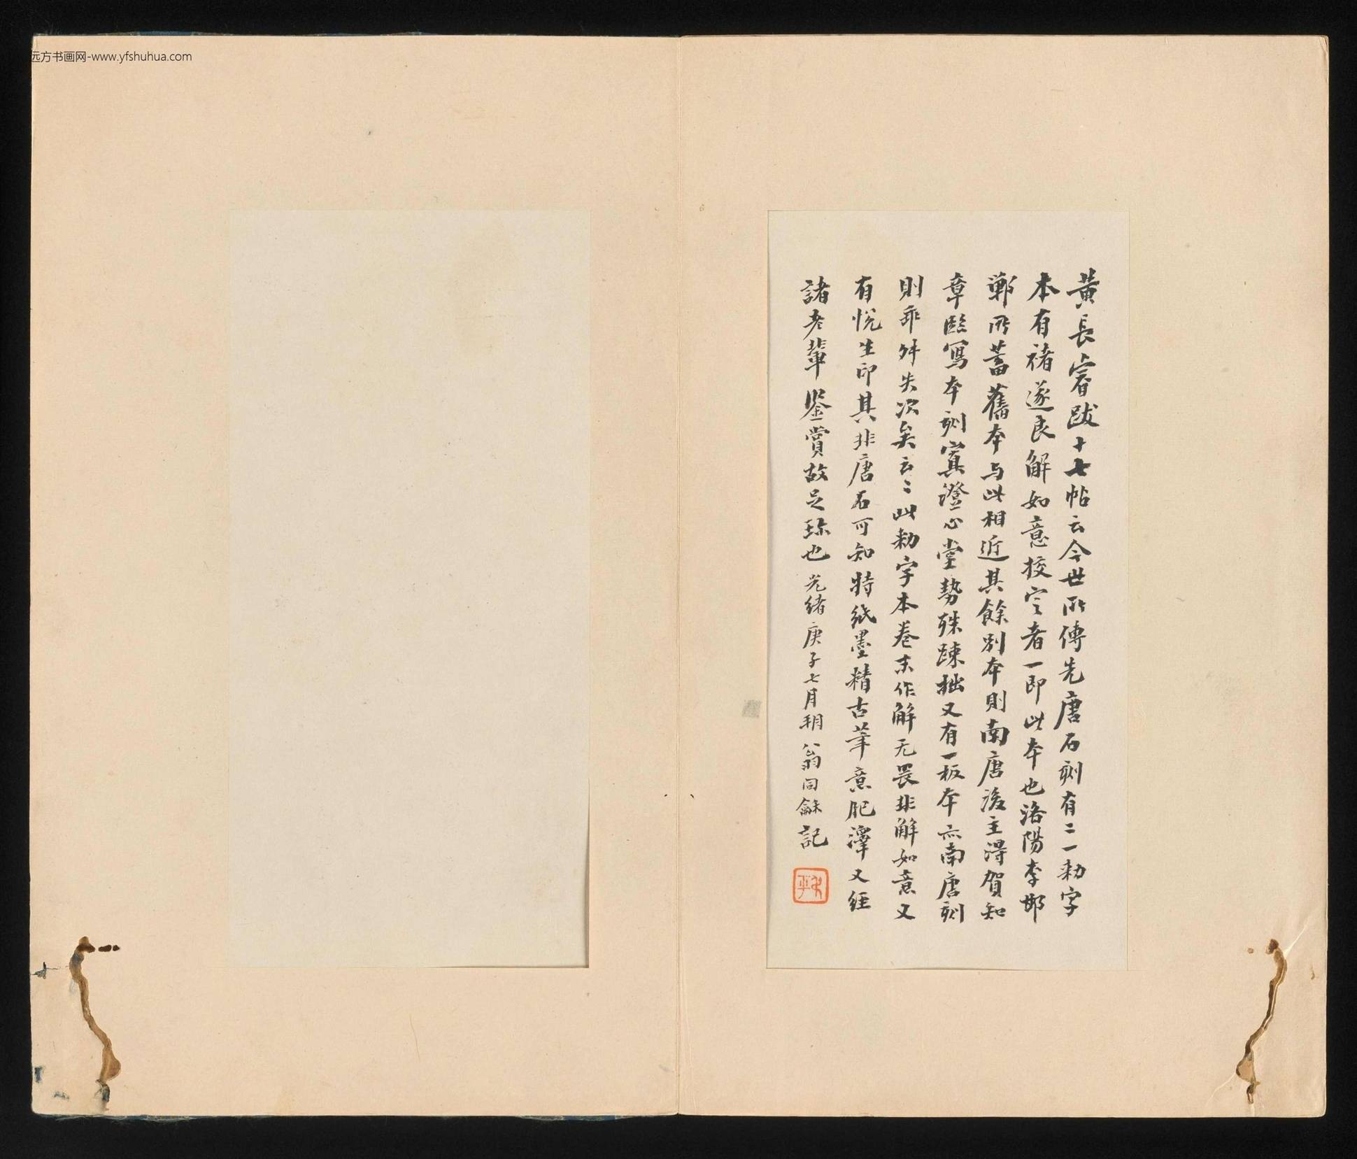 远方书画网-www.yfshuhua.com
黃長睿跋十七帖云今世所傳先唐石刻有二一勅字
本有褚遂良解如意挍定者一即此本也洛陽李邯
鄲所蓄舊本与此相近其餘別本則南唐後主得賀知
章臨寫本刻寘澄心堂勢殊疎拙又有一板本亦南唐刻
則乖舛失次矣云〻此勅字本卷末作解无畏非解如意又
有悅生印其非唐石可知特紙墨精古筆意肥澤又經
諸老輩鑒賞故足珎也 光緒庚子七月朔 翁同龢記